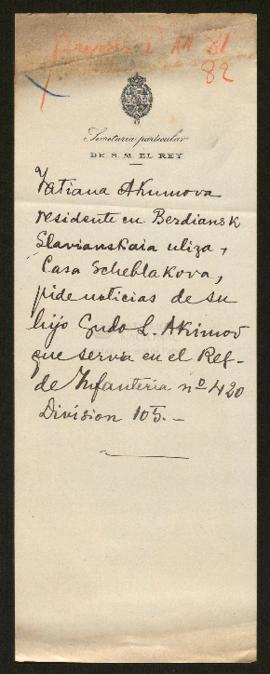 81
82
Secretaría particular
DE S. M. EL REY
Tatiana Akimova
residente en Berdiansk
Slavianskaia uliza,
Casa Scheblakova,
pide noticias de su
hijo L. Akimov
que servia en el Reg-
de Infantería nº 420
División 105.-